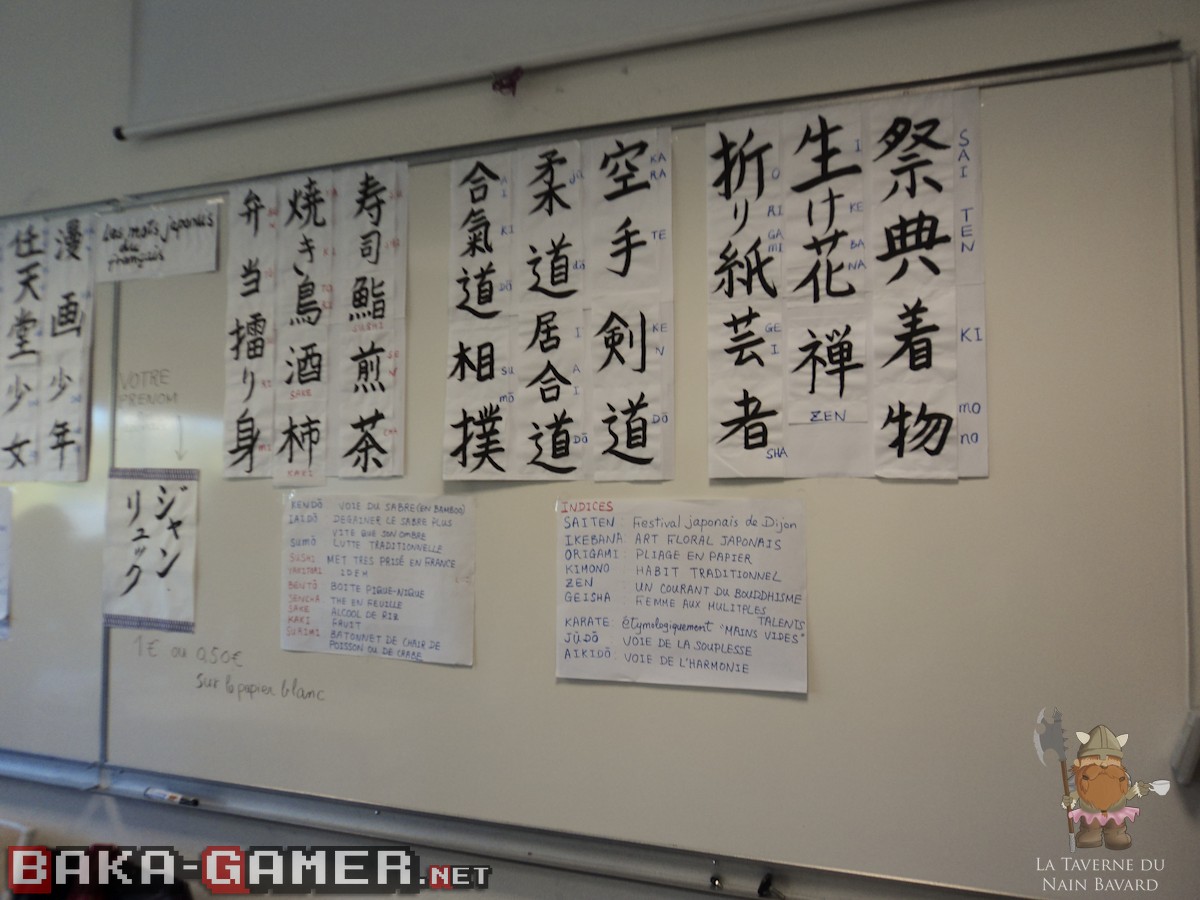 任天堂少女
漫画少年
Les mots japonais
du
français
弁当擂り身
焼き鳥酒柿
SAKE
KAKI
寿司鮨煎茶
SUSHI
CHA
合氣道相撲
A
I
KI
Dō
SU
mō
柔道居合道
jū
dō
I
A
I
Dō
空手剣道
KA
RA
TE
KE
N
Dō
折り紙芸者
O
RI
GA
mi
GE
I
SHA
生け花禅
I
KE
BA
NA
ZEN
祭典着物
SAI
TEN
KI
mo
no
VOTRE
PRENOM
ジャン
リュック
1€ ou 0,50€
sur le papier blanc
KENDō VOIE DU SABRE (EN BAMBOO)
IAIDō DEGAINER LE SABRE PLUS
VITE QUE SON OMBRE
SUMō LUTTE TRADITIONNELLE
SUSHI MET TRES PRISÉ EN FRANCE
YAKITORI IDEM
BENTō BOITE PIQUE-NIQUE
SENCHA THE EN FEUILLE
SAKE ALCOOL DE RIZ
KAKI FRUIT
SURIMI BATONNET DE CHAIR DE
POISSON OU DE CRABE
INDICES
SAITEN : Festival japonais de Dijon
IKEBANA : ART FLORAL JAPONAIS
ORIGAMI : PLIAGE EN PAPIER
KIMONO HABIT TRADITIONNEL
ZEN UN COURANT DU BOUDDHISME
GEISHA FEMME AUX MULITPLES
TALENTS
KARATE : étymologiquement "MAINS VIDES"
JŪDō VOIE DE LA SOUPLESSE
AIKIDō : VOIE DE L'HARMONIE
BAKA-GAMER.NET
LA TAVERNE DU
NAIN BAVARD